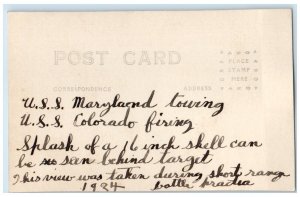 POST CARD
PLACE
STAMP
HERE
CORRESPONDENCE ADDRESS
U.S.S. Marylaond towing
U.S.S. Colorado firing
Splash of a 16 inch shell can
be so seen behind target
This view was taken during short range
1924 battle